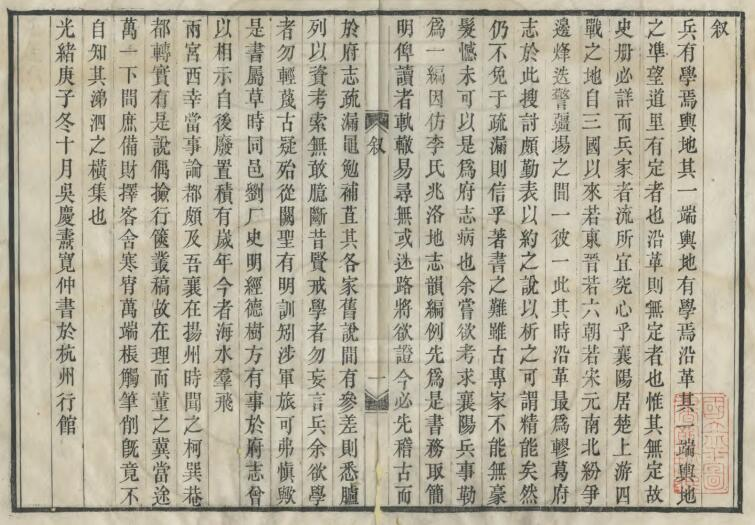 叙
兵有學焉輿地其一端輿地有學焉沿革其一端輿地
之凖望道里有定者也沿革則無定者也惟其無定故
史册必詳而兵家者流所宜究心乎襄陽居楚上游四
戰之地自三國以來若東晉若六朝若宋元南北紛爭
邊烽迭警疆埸之間一彼一此其時沿革最爲轇葛府
志於此搜討頗勤表以約之說以析之可謂精能矣然
仍不免于疏漏則信乎著書之難雖古專家不能無豪
髮憾未可以是爲府志病也余嘗欲考求襄陽兵事勒
爲一編因仿李氏兆洛地志韻編例先爲是書務取簡
明俾讀者軌轍易尋無或迷路將欲證今必先稽古而
叙 一
於府志疏漏黽勉補苴其各家舊說間有參差則悉臚
列以資考索無敢臆斷昔賢戒學者勿妄言兵余欲學
者勿輕蔑古疑殆從闕聖有明訓矧涉軍旅可弗愼歟
是書屬草時同邑劉厂史明經德樹方有事於府志曾
以相示自後廢置積有歲年今者海水羣飛
兩宮西幸當事論都頗及吾襄在揚州時聞之柯巽菴
都轉實有是說偶撿行篋叢稿故在理而董之冀當途
萬一下問庶備財擇客舍寒宵萬端棖觸筆削旣竟不
自知其涕泗之橫集也
光緒庚子冬十月吳慶燾寬仲書於杭州行館